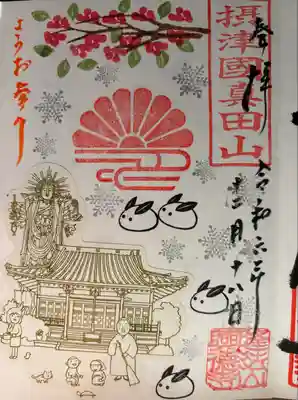 奉拝
令和六年
摂津國真田山
十二月十八日
ようお参り